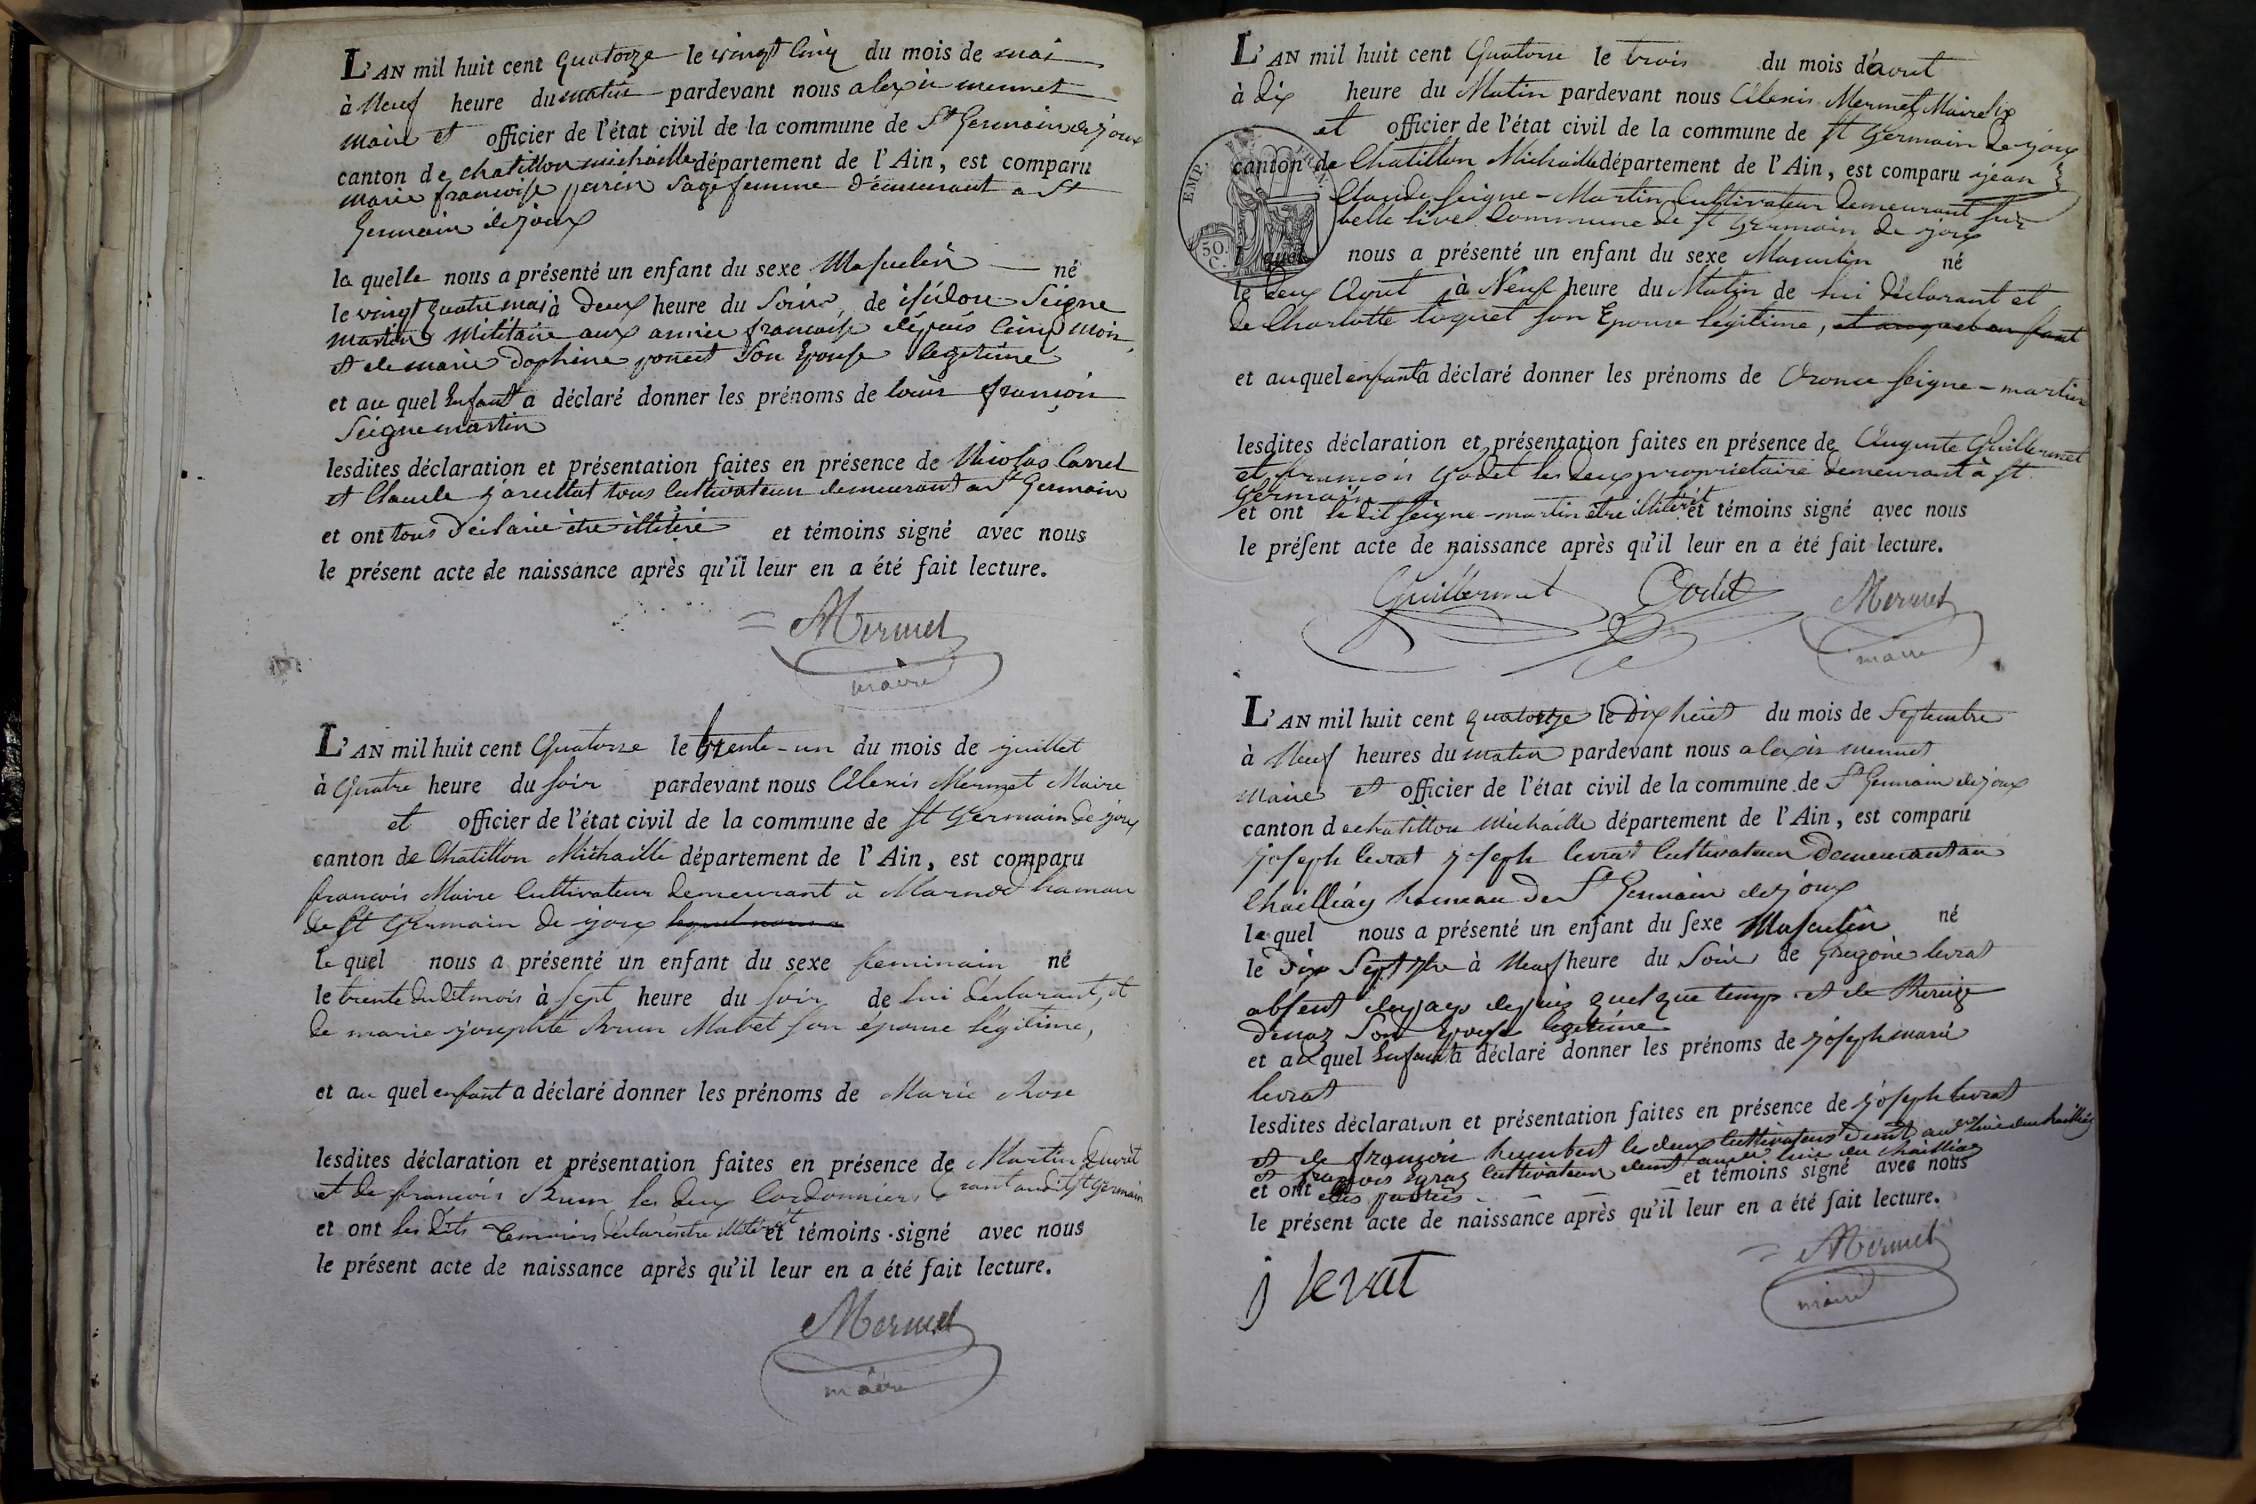 L'AN mil huit cent quatorze le vingt cinq du mois de mai
à Neuf heure du matin pardevant nous alexis mermet
maire et officier de l'état civil de la commune de St Germain de joux
canton de chatillon michaille département de l'Ain, est comparu
marie francoise perrin sage femme demeurant a St
Germain de joux
la quelle nous a présenté un enfant du sexe Masculin né
le vingt quatre mai à deux heure du Soir, de isidore Seigne
martin Militaire aux armée francaise depuis Cinq mois
et de marie Dophine ponest Son Epouse legitime
et au quel Enfant a déclaré donner les prénoms de louis françois
Seigne martin
lesdites déclaration et présentation faites en présence de Nicolas Carret
et Claude tous Cultivateur demeurant a St Germain
et ont tous déclarée être illitéré et témoins signé avec nous
le présent acte de naissance après qu'il leur en a été fait lecture.
Mermet
maire
L'AN mil huit cent Quatorze le trente-un du mois de juillet
à Quatre heure du soir pardevant nous Alexis Mermet Maire
et officier de l'état civil de la commune de St Germain de joux
canton de Chatillon Michaille département de l'Ain, est comparu
françois Maire Cultivateur demeurant à Marnod hamau
de St Germain de joux
le quel nous a présenté un enfant du sexe feminain né
le trente dudit mois à sept heure du soir de lui déclarant, et
de marie josephte Brun Mabet son épouse légitime,
et au quel enfant a déclaré donner les prénoms de Marie Rose
lesdites déclaration et présentation faites en présence de Martin
et de françois Brun les deux Cordonniers rant audit St Germain
et ont les dits Temoins déclaré être illiteré et témoins signé avec nous
le présent acte de naissance après qu'il leur en a été fait lecture.
Mermet
maire
L'AN mil huit cent Quatorze le trois du mois d'aout
à Dix heure du Matin pardevant nous Alexis Mermet Maire
et officier de l'état civil de la commune de St Germain de joux
canton de Chatillon Michaille département de l'Ain, est comparu jean
Claude Seigne-Martin Cultivateur demeurant sur
belle live Commune de St Germain de joux
l quel nous a présenté un enfant du sexe Masculin né
le deux Aout à Neuf heure du Matin de lui déclarant et
de Charlotte toquet son Epouse légitime, et auquel enfant
et auquel enfant a déclaré donner les prénoms de seigne-martin
lesdites déclaration et présentation faites en présence de Auguste Guillermet
et françois Godet les deux propriétaire demeurant à St
Germain
et ont le dit seigne-martin être illiteré et témoins signé avec nous
le présent acte de naissance après qu'il leur en a été fait lecture.
Guillermet Godet Mermet
maire
EMP.
50.
C.
L'AN mil huit cent quatortze le Dix huit du mois de Septembre
à Neuf heures du matin pardevant nous alexis mermet
maire et officier de l'état civil de la commune de St Germain de joux
canton de chatillon Michaille département de l'Ain, est comparu
joseph levrat joseph levrat Cultivateur Demeurant au
Chailliay hameau de St Germain de joux
le quel nous a présenté un enfant du sexe Masculin né
le dix Sept 7bre à Neuf heure du Soir de Gregoire levrat
absent du pays depuis quelque temps et de
Son Epouse legitime
et au quel Enfant a déclaré donner les prénoms de joseph marie
levrat
lesdites déclaration et présentation faites en présence de joseph levrat
et de françois humbert les deux Cultivateurs
et françois Cultivateur
et ont et témoins signé avec nous
le présent acte de naissance après qu'il leur en a été fait lecture.
j levrat Mermet
maire